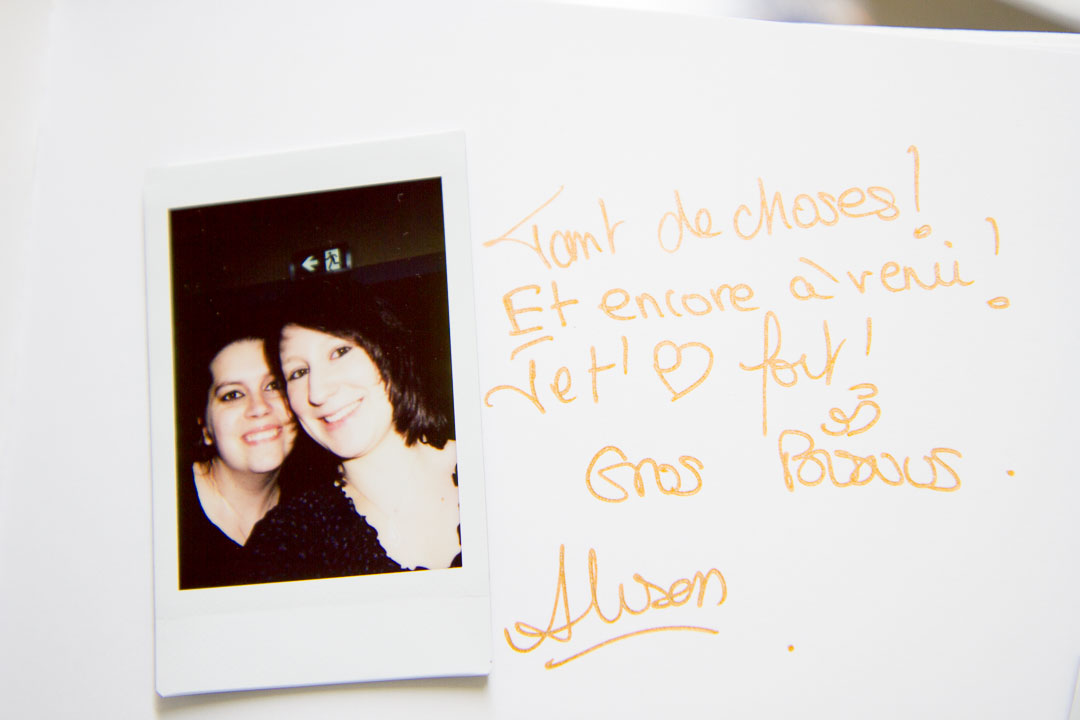 Tant de choses !
Et encore à venir !
Je t' ♡ fort !
Gros Bisous .
Alison